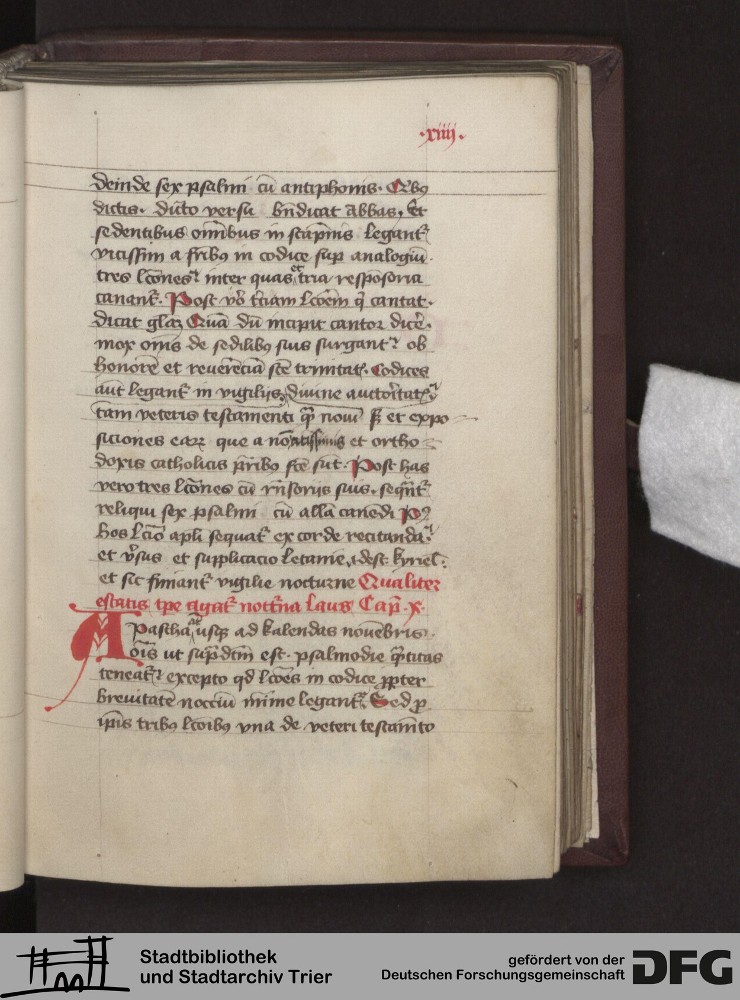 ·xiiij·
deinde sex psalmi cū antiphonis· Q̃bꝯ
dictis· dicto versu bn̄dicat abbas, Et
sedentibus om̄ibus in scāpnis legant᷑
vicissim a fr̄ibꝯ in codice sup̄ analogiū·
tres lc̄ones inter quas tria respōsoria
canant᷑· Post vº t̄ciam lc̄oēm q̄ cantat·
dicat glaꝝ Quā dū incipit cantor dice᷑·
mox om̄s de sedilibꝯ suis surgant᷑ ob
honorē et reuerēciā scē trinitat᷑· Codices
aut̄ legant᷑ in vigilijs, diuine auctoritat᷑
tam veteris testamenti q̄ȝ noui ſꝫ et expo
siciones eaꝝ que a et ortho
doxis catholicis pr̄ibꝯ fc̄e sūt· Post has
vero tres lc̄ones cū rn̄sorijs suis· seqn̄t᷑
reliqui sex psalmi cū all̄a canēdi Pꝰ
hos lc̄io apl̄i sequat᷑ ex corde recitanda·
et v̄sus et supplicacio letanie, idest kyriel·
et sic finiant᷑ vigilie nocturne Qualiter
estatis tp̄e agat᷑ noct᷑na laus Cap̄· x·
A Pascha aūt usqꝫ ad kalendas nouēbris·
oīs ut sup̄dc̄m est· psalmodie q̄ntitas
teneat᷑ excepto qd̄ lc̄oēs in codice ꝓpter
breuitatē nocciū mīme legant᷑· Sed ꝓ
ip̄is tribꝯ lc̄oībꝯ vna de veteri testam̄to
Stadtbibliothek
und Stadtarchiv Trier
gefördert von der
Deutschen Forschungsgemeinschaft
DFG